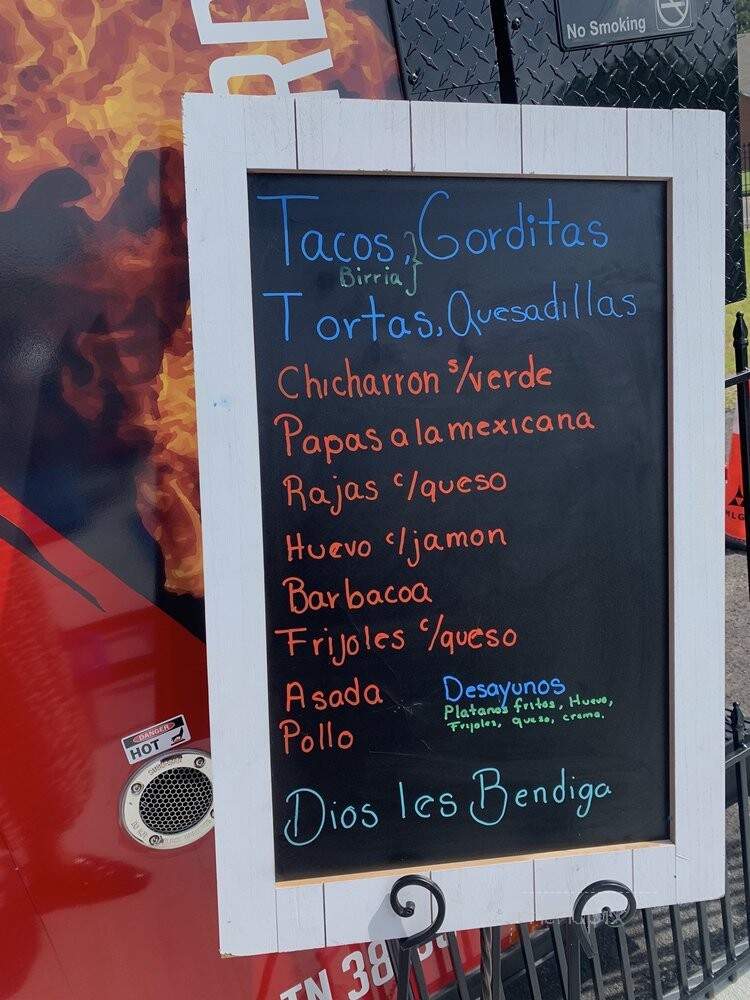 RD
No Smoking
Tacos, Gorditas
Birria
Tortas, Quesadillas
Chicharron s/verde
Papas a la mexicana
Rajas c/queso
Huevo c/jamon
Barbacoa
Frijoles c/queso
Asada
Pollo
Desayunos
Platanos fritos, Huevo,
Frijoles, queso, crema.
Dios les Bendiga
DANGER
HOT
TN 38